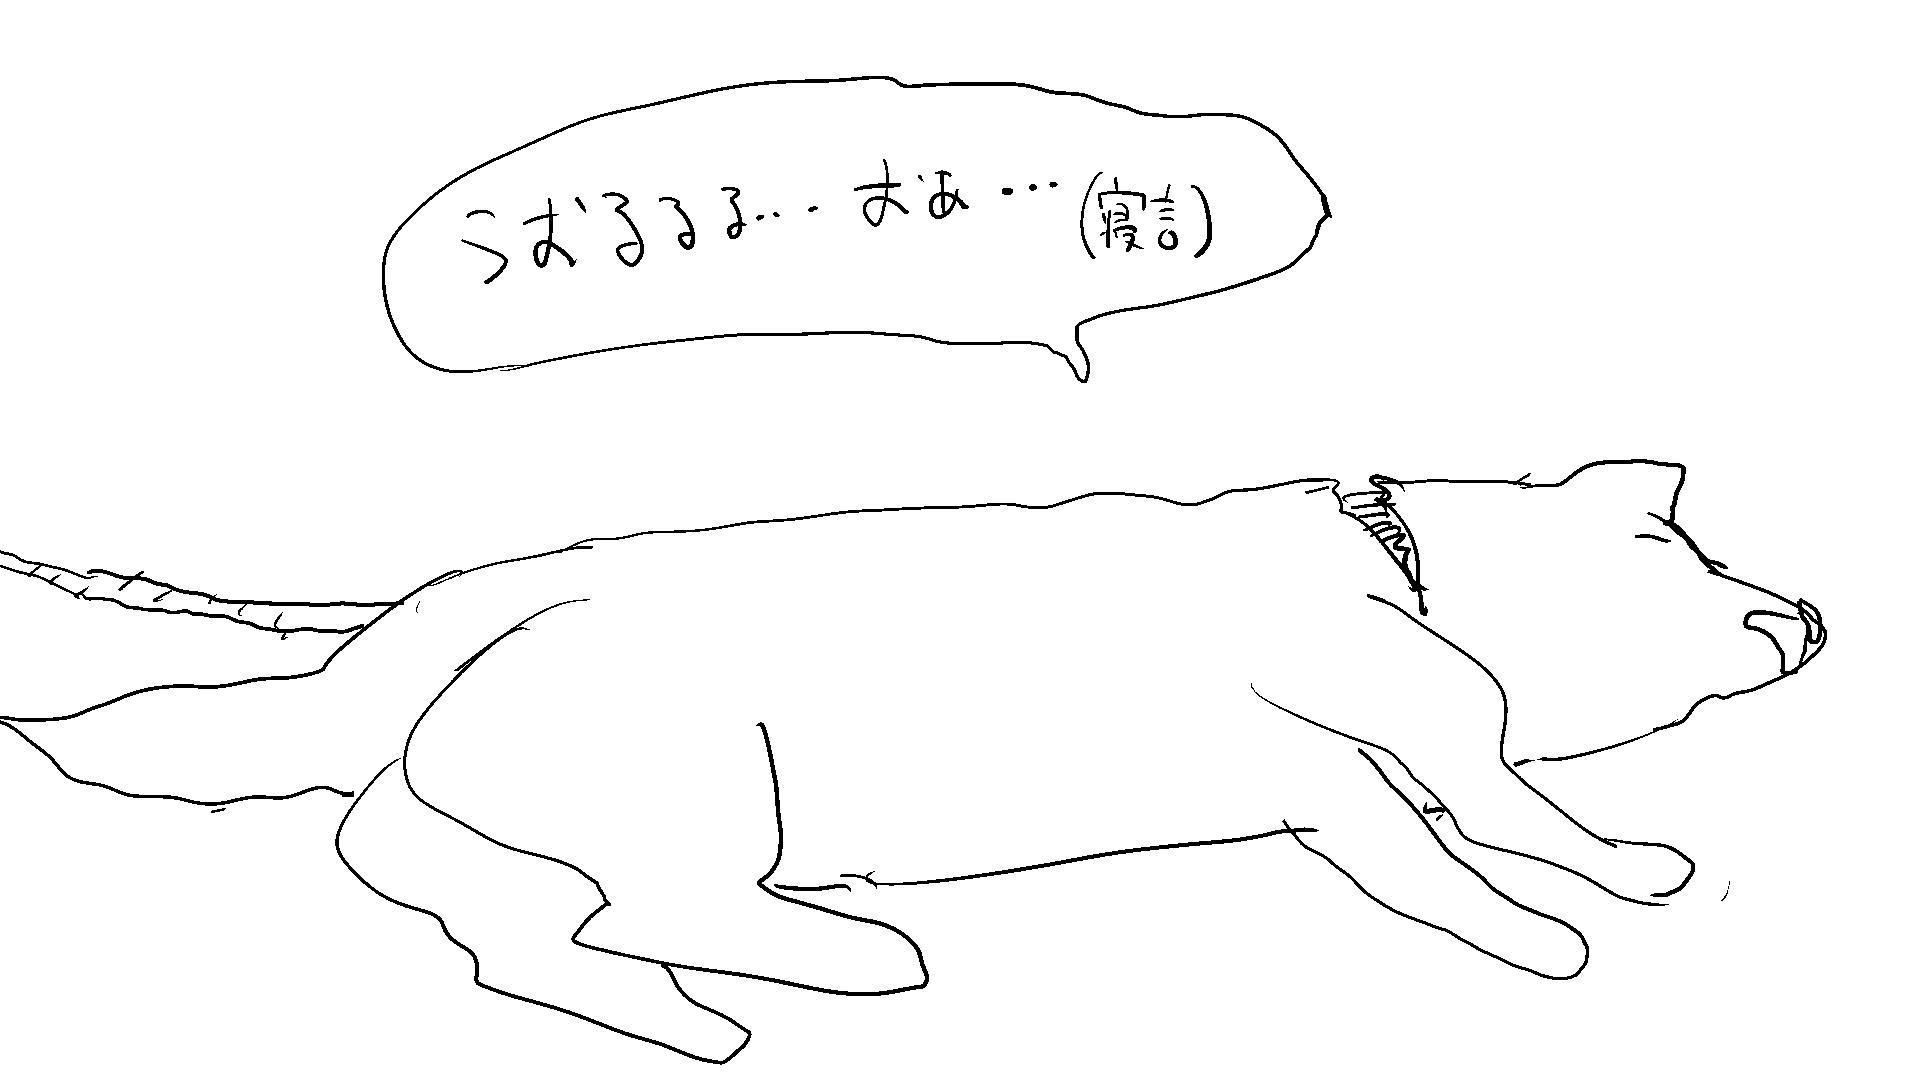 うおるるる... おぁ...(寝言)